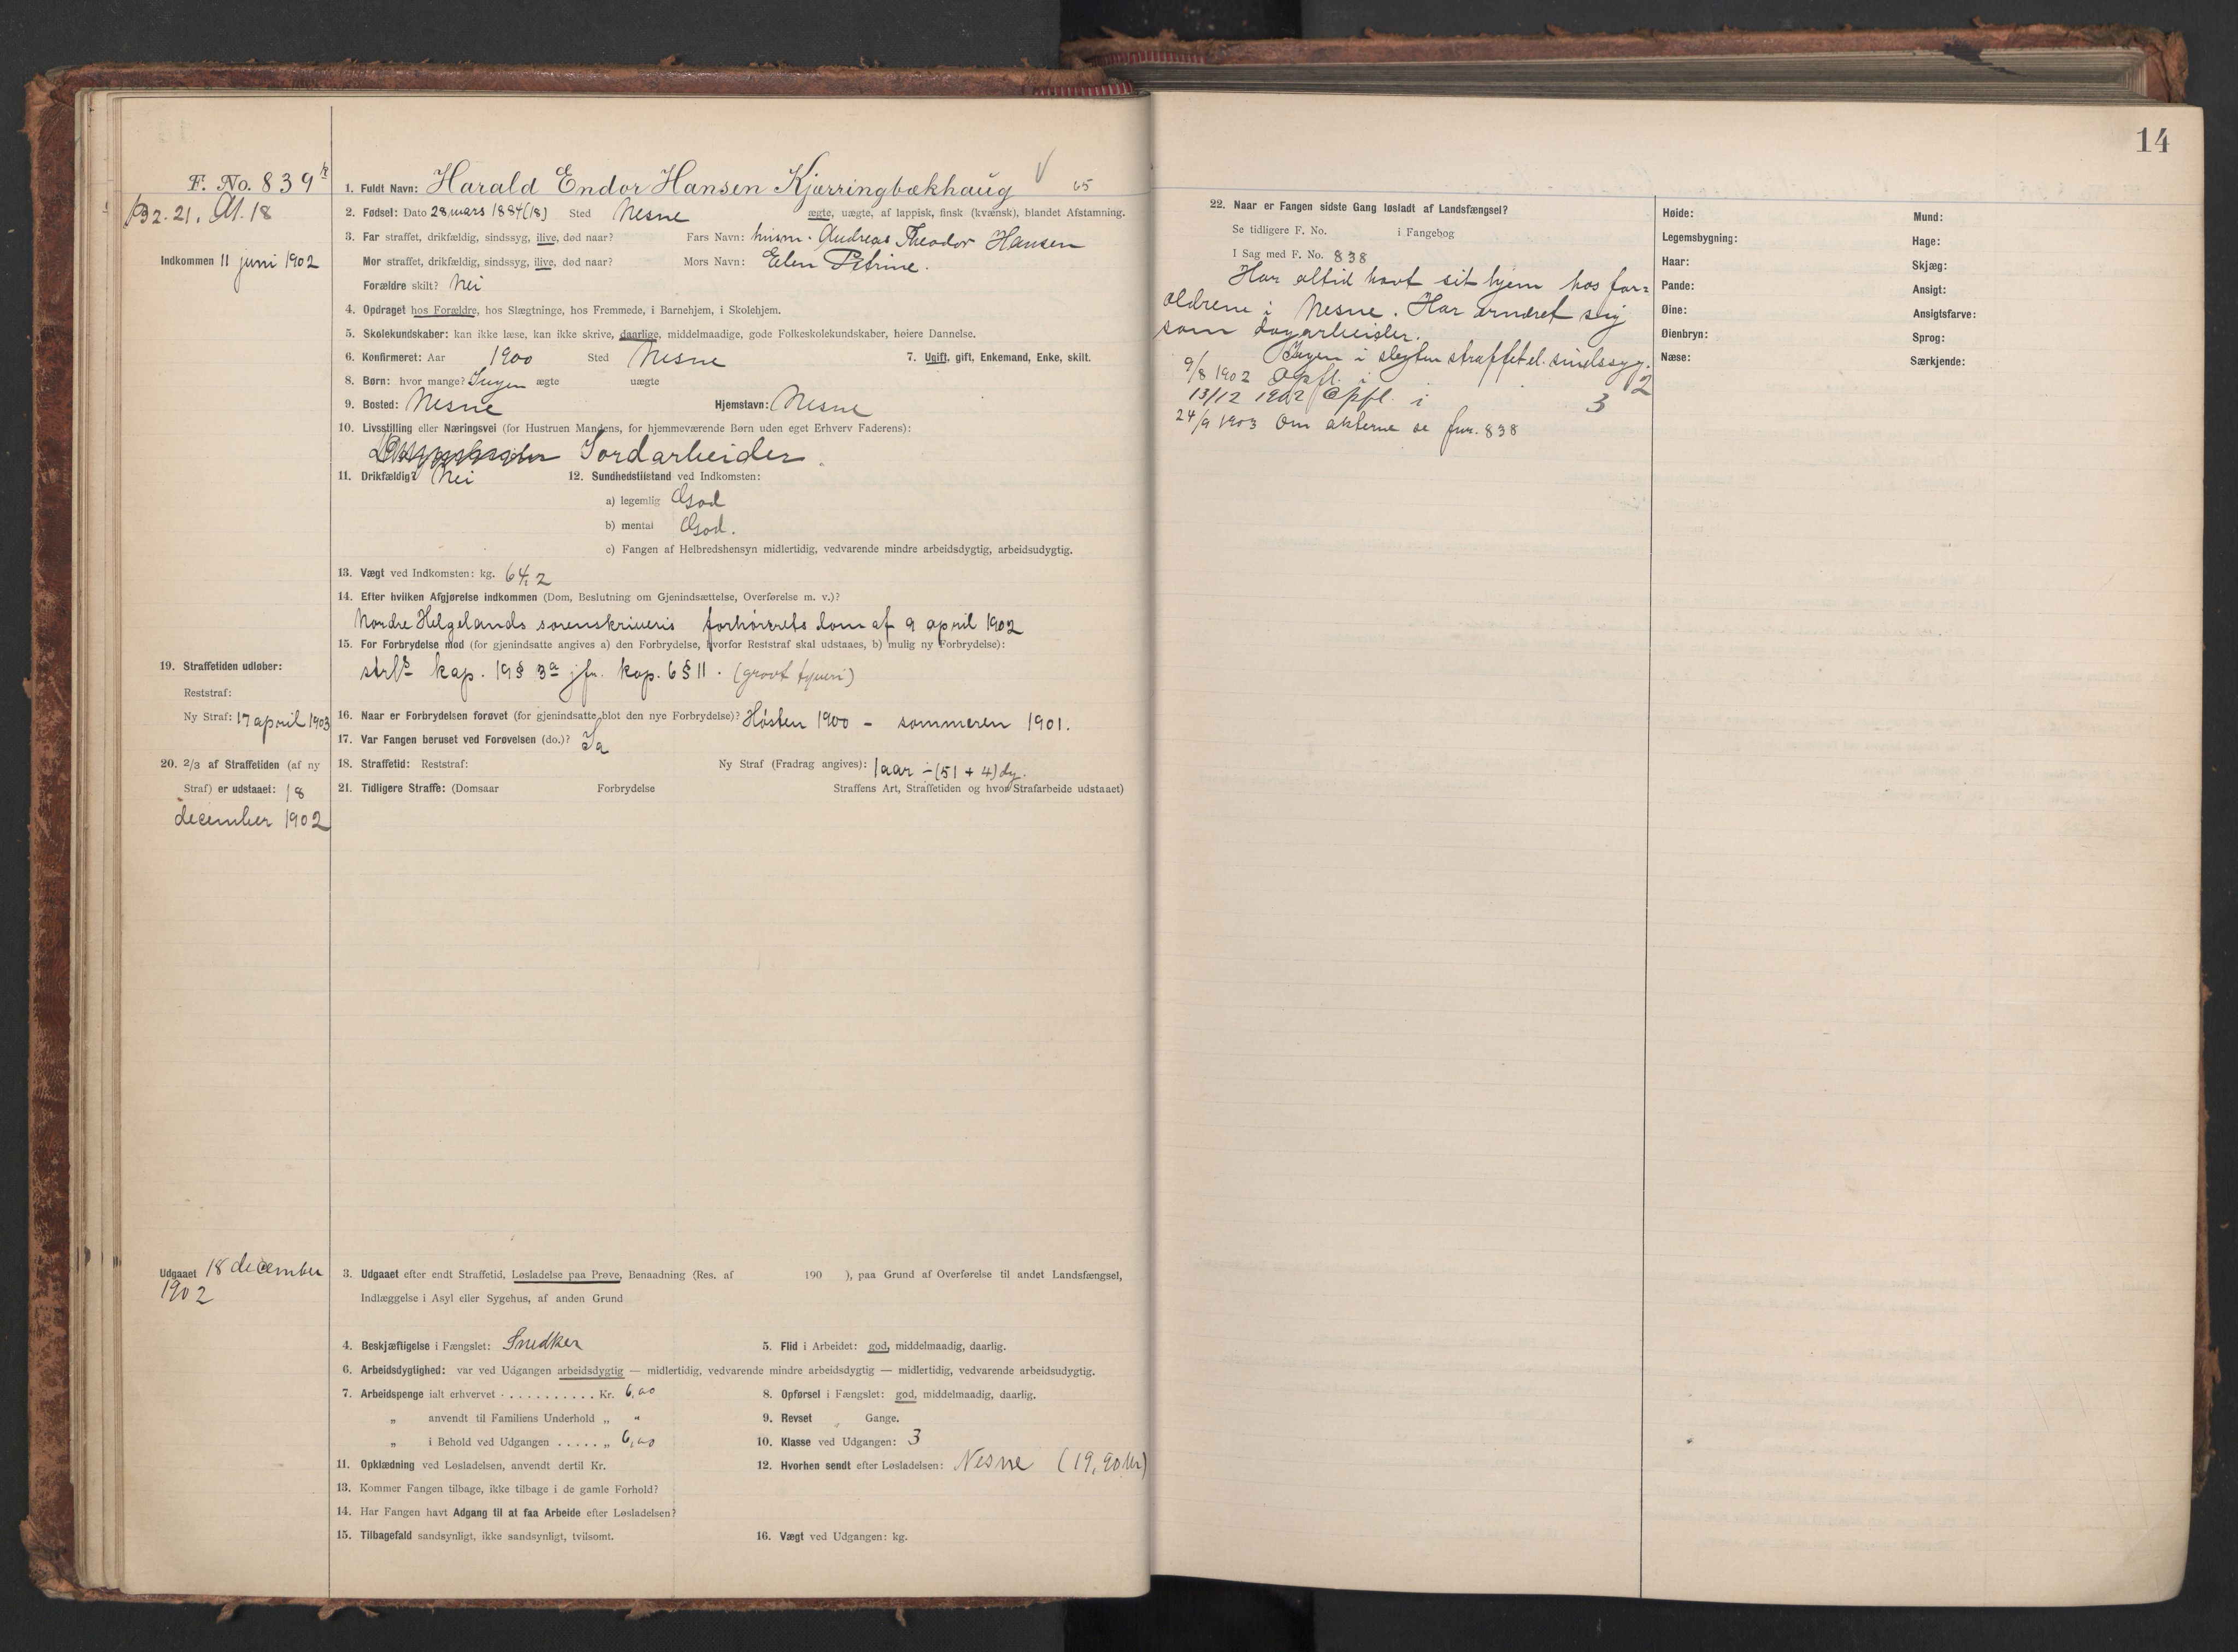 14
F. No. 839
B 2. 21. M. 18
Indkommen 11 juni 1902
1. Fuldt Navn: Harald Endor Hansen Kjærringbækhaug 65
2. Fødsel: Dato 28 mars 1884 (18) Sted Nesne ægte, uægte, af lappisk, finsk (kvænsk), blandet Afstamning.
3. Far straffet, drikfældig, sindssyg, ilive, død naar? Fars Navn: husm. Andreas Theodor Hansen
Mor straffet, drikfældig, sindssyg, ilive, død naar? Mors Navn: Elen Petrine.
Forældre skilt? Nei
4. Opdraget hos Forældre, hos Slægtninge, hos Fremmede, i Barnehjem, i Skolehjem.
5. Skolekundskaber: kan ikke læse, kan ikke skrive, daarlige, middelmaadige, gode Folkeskolekundskaber, høiere Dannelse.
6. Konfirmeret: Aar 1900 Sted Nesne 7. Ugift, gift, Enkemand, Enke, skilt.
8. Børn: hvor mange? Ingen ægte uægte
9. Bosted: Nesne Hjemstavn: Nesne
10. Livsstilling eller Næringsvei (for Hustruen Mandens, for hjemmeværende Børn uden eget Erhverv Faderens):
Jordarbeider.
11. Drikfældig? Nei 12. Sundhedstilstand ved Indkomsten:
a) legemlig God
b) mental God.
c) Fangen af Helbredshensyn midlertidig, vedvarende mindre arbeidsdygtig, arbeidsudygtig.
13. Vægt ved Indkomsten: kg. 64,2
14. Efter hvilken Afgjørelse indkommen (Dom, Beslutning om Gjenindsættelse, Overførelse m. v.)?
Nordre Helgelands sorenskriveris forhørsrets dom af 9 april 1902
15. For Forbrydelse mod (for gjenindsatte angives a) den Forbrydelse, hvorfor Reststraf skal udstaaes, b) mulig ny Forbrydelse):
strls kap. 19 § 3a jfr. kap. 6 § 11. (grovt tyveri)
16. Naar er Forbrydelsen forøvet (for gjenindsatte blot den nye Forbrydelse)? Høsten 1900 - sommeren 1901.
17. Var Fangen beruset ved Forøvelsen (do.)? Ja
18. Straffetid: Reststraf: Ny Straf (Fradrag angives): 1 aar ÷ (51 + 4) dg.
19. Straffetiden udløber:
Reststraf:
Ny Straf: 17 april 1903
20. 2/3 af Straffetiden (af ny
Straf) er udstaaet: 18
december 1902
21. Tidligere Straffe: (Domsaar Forbrydelse Straffens Art, Straffetiden og hvor Strafarbeide udstaaet)
Udgaaet 18 december
1902
3. Udgaaet efter endt Straffetid, Løsladelse paa Prøve, Benaadning (Res. af 190 ), paa Grund af Overførelse til andet Landsfængsel,
Indlæggelse i Asyl eller Sygehus, af anden Grund
4. Beskjæftigelse i Fængslet: Snedker 5. Flid i Arbeidet: god, middelmaadig, daarlig.
6. Arbeidsdygtighed: var ved Udgangen arbeidsdygtig — midlertidig, vedvarende mindre arbeidsdygtig — midlertidig, vedvarende arbeidsudygtig.
7. Arbeidspenge ialt erhvervet . . . . . . . . . . . Kr. 6,00 8. Opførsel i Fængslet: god, middelmaadig, daarlig.
„ anvendt til Familiens Underhold „ „ 9. Revset „ Gange.
„ i Behold ved Udgangen . . . . . „ 6,00 10. Klasse ved Udgangen: 3
11. Opklædning ved Løsladelsen, anvendt dertil Kr. 12. Hvorhen sendt efter Løsladelsen: Nesne (19,90 kr)
13. Kommer Fangen tilbage, ikke tilbage i de gamle Forhold?
14. Har Fangen havt Adgang til at faa Arbeide efter Løsladelsen?
15. Tilbagefald sandsynligt, ikke sandsynligt, tvilsomt. 16. Vægt ved Udgangen: kg.
22. Naar er Fangen sidste Gang løsladt af Landsfængsel?
Se tidligere F. No. i Fangebog
I Sag med F. No. 838
Har altid havt sit hjem hos for=
ældrene i Nesne. Har ernæret sig
som dagarbeider.
Ingen i slegten straffet el. sindssyg.
9/8 1902 Opfl. i 2
13/12 1902 Opfl. i 3
24/9 1903 Om akterne se fnr. 838
Høide:
Legemsbygning:
Haar:
Pande:
Øine:
Øienbryn:
Næse:
Mund:
Hage:
Skjæg:
Ansigt:
Ansigtsfarve:
Sprog:
Særkjende: